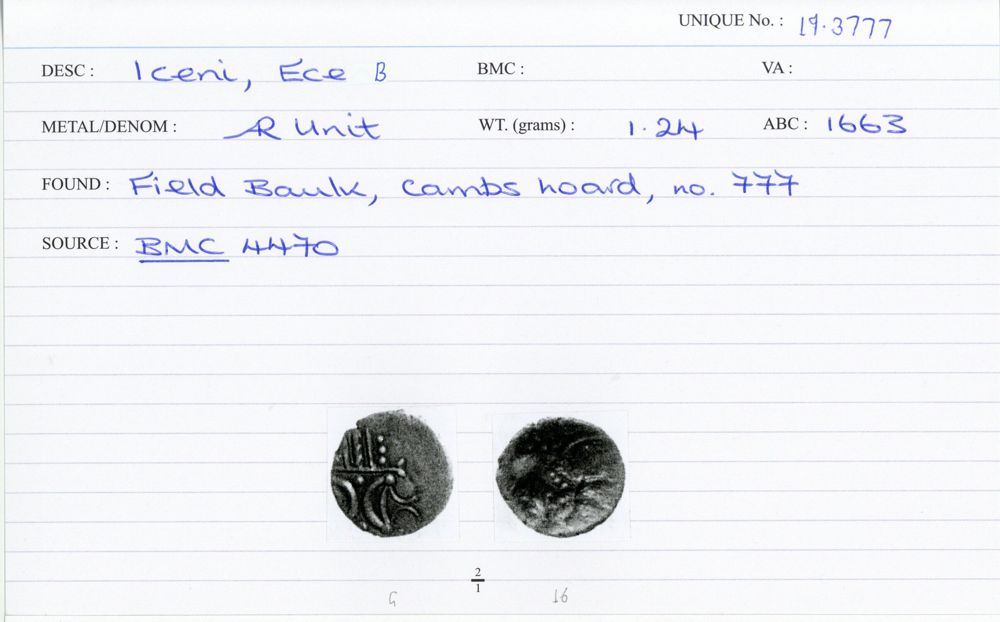 UNIQUE No. : 19.3777
DESC : Iceni, Ece B BMC : VA :
METAL/DENOM : AR Unit WT. (grams) : 1.24 ABC : 1663
FOUND : Field Baulk, Cambs hoard, no. 777
SOURCE : BMC 4470
2
1
G 16